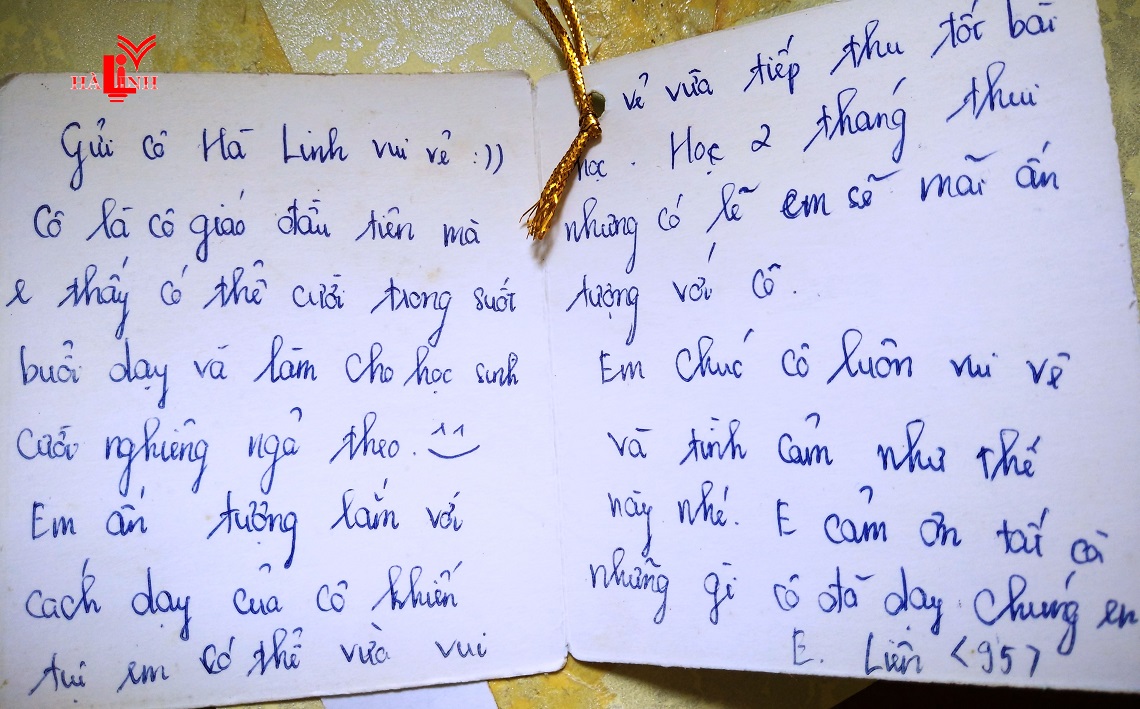 HÀ LINH
Gửi cô Hà Linh vui vẻ :))
Cô là cô giáo đầu tiên mà
e thấy có thể cười trong suốt
buổi dạy và làm cho học sinh
cười nghiêng ngả theo. ^^
Em ấn tượng lắm với
cách dạy của cô khiến
tụi em có thể vừa vui
vẻ vừa tiếp thu tốt bài
học. Học 2 tháng thui
nhưng có lẽ em sẽ mãi ấn
tượng với cô.
Em chúc cô luôn vui vẻ
và tình cảm như thế
này nhé. E cảm ơn tất cả
những gì cô đã dạy chúng em
E. Liên <95>